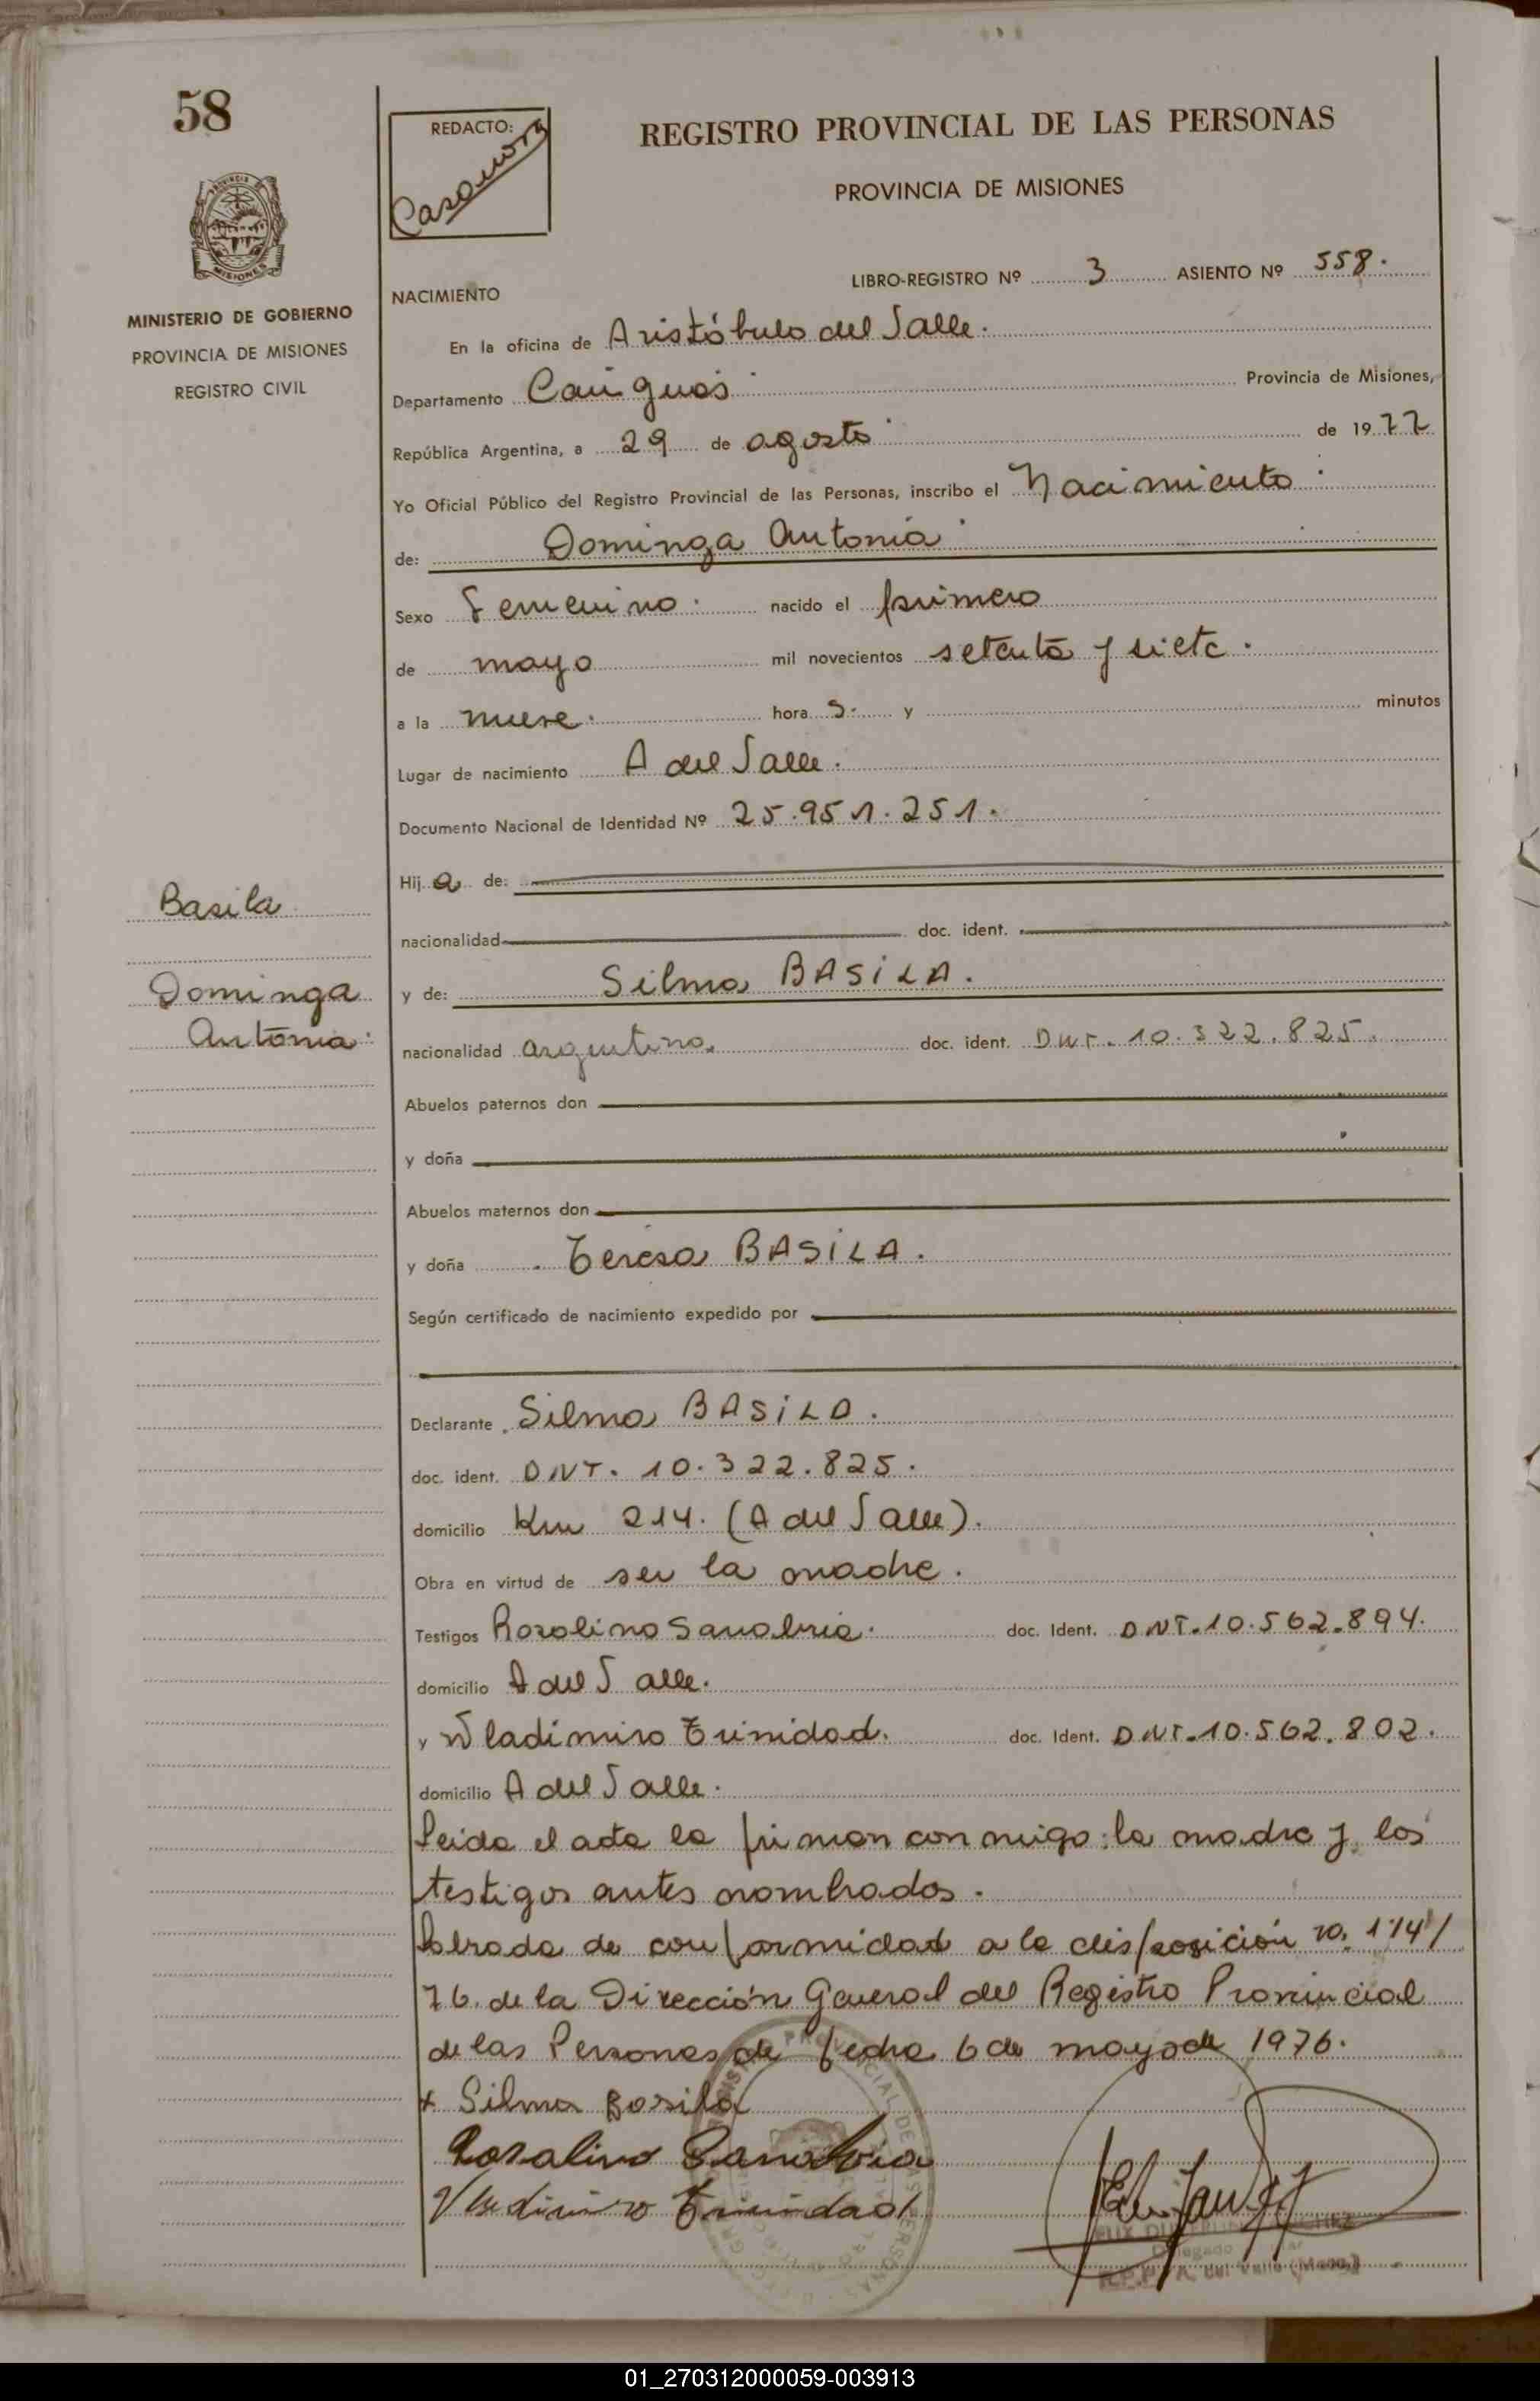 58
REDACTO:
Casanova
REGISTRO PROVINCIAL DE LAS PERSONAS
PROVINCIA DE MISIONES
PROVINCIA DE
MISIONES
MINISTERIO DE GOBIERNO
PROVINCIA DE MISIONES
REGISTRO CIVIL
LIBRO-REGISTRO Nº 3 ASIENTO Nº 558.
NACIMIENTO
En la oficina de Aristóbulo del Valle.
Departamento Cainguás Provincia de Misiones,
República Argentina, a 29 de agosto de 1977
Yo Oficial Público del Registro Provincial de las Personas, inscribo el Nacimiento
de: Dominga Antonia
Sexo Femenino. nacido el primero
de mayo mil novecientos setenta y siete.
a la nueve. hora s. y minutos
Lugar de nacimiento A del Valle.
Documento Nacional de Identidad Nº 25.951.251.
Hij a de:
nacionalidad doc. ident.
y de: Silma BASILA.
nacionalidad argentina. doc. ident. DNI. 10.322.825.
Basila
Dominga
Antonia
Abuelos paternos don
y doña
Abuelos maternos don
y doña Teresa BASILA.
Según certificado de nacimiento expedido por
Declarante Silma BASILA.
doc. ident. DNI. 10.322.825.
domicilio Km 214. (A del Valle).
Obra en virtud de ser la madre.
Testigos Rosalino Sanabria. doc. Ident. DNI. 10.562.894.
domicilio A del Valle.
y Wladimiro Trinidad. doc. Ident. DNI. 10.562.802.
domicilio A del Valle.
Leida el acta la firman conmigo: la madre y los
testigos antes nombrados.
Labrada de conformidad a la disposición no. 114/
76. de la Dirección General del Registro Provincial
de las Personas de fecha 6 de mayo de 1976.
x Silma Basila
Rosalino Sanabria
Vladimiro Trinidad
Delegado
R.P.P. A. del Valle (Mnes.)
01_270312000059-003913